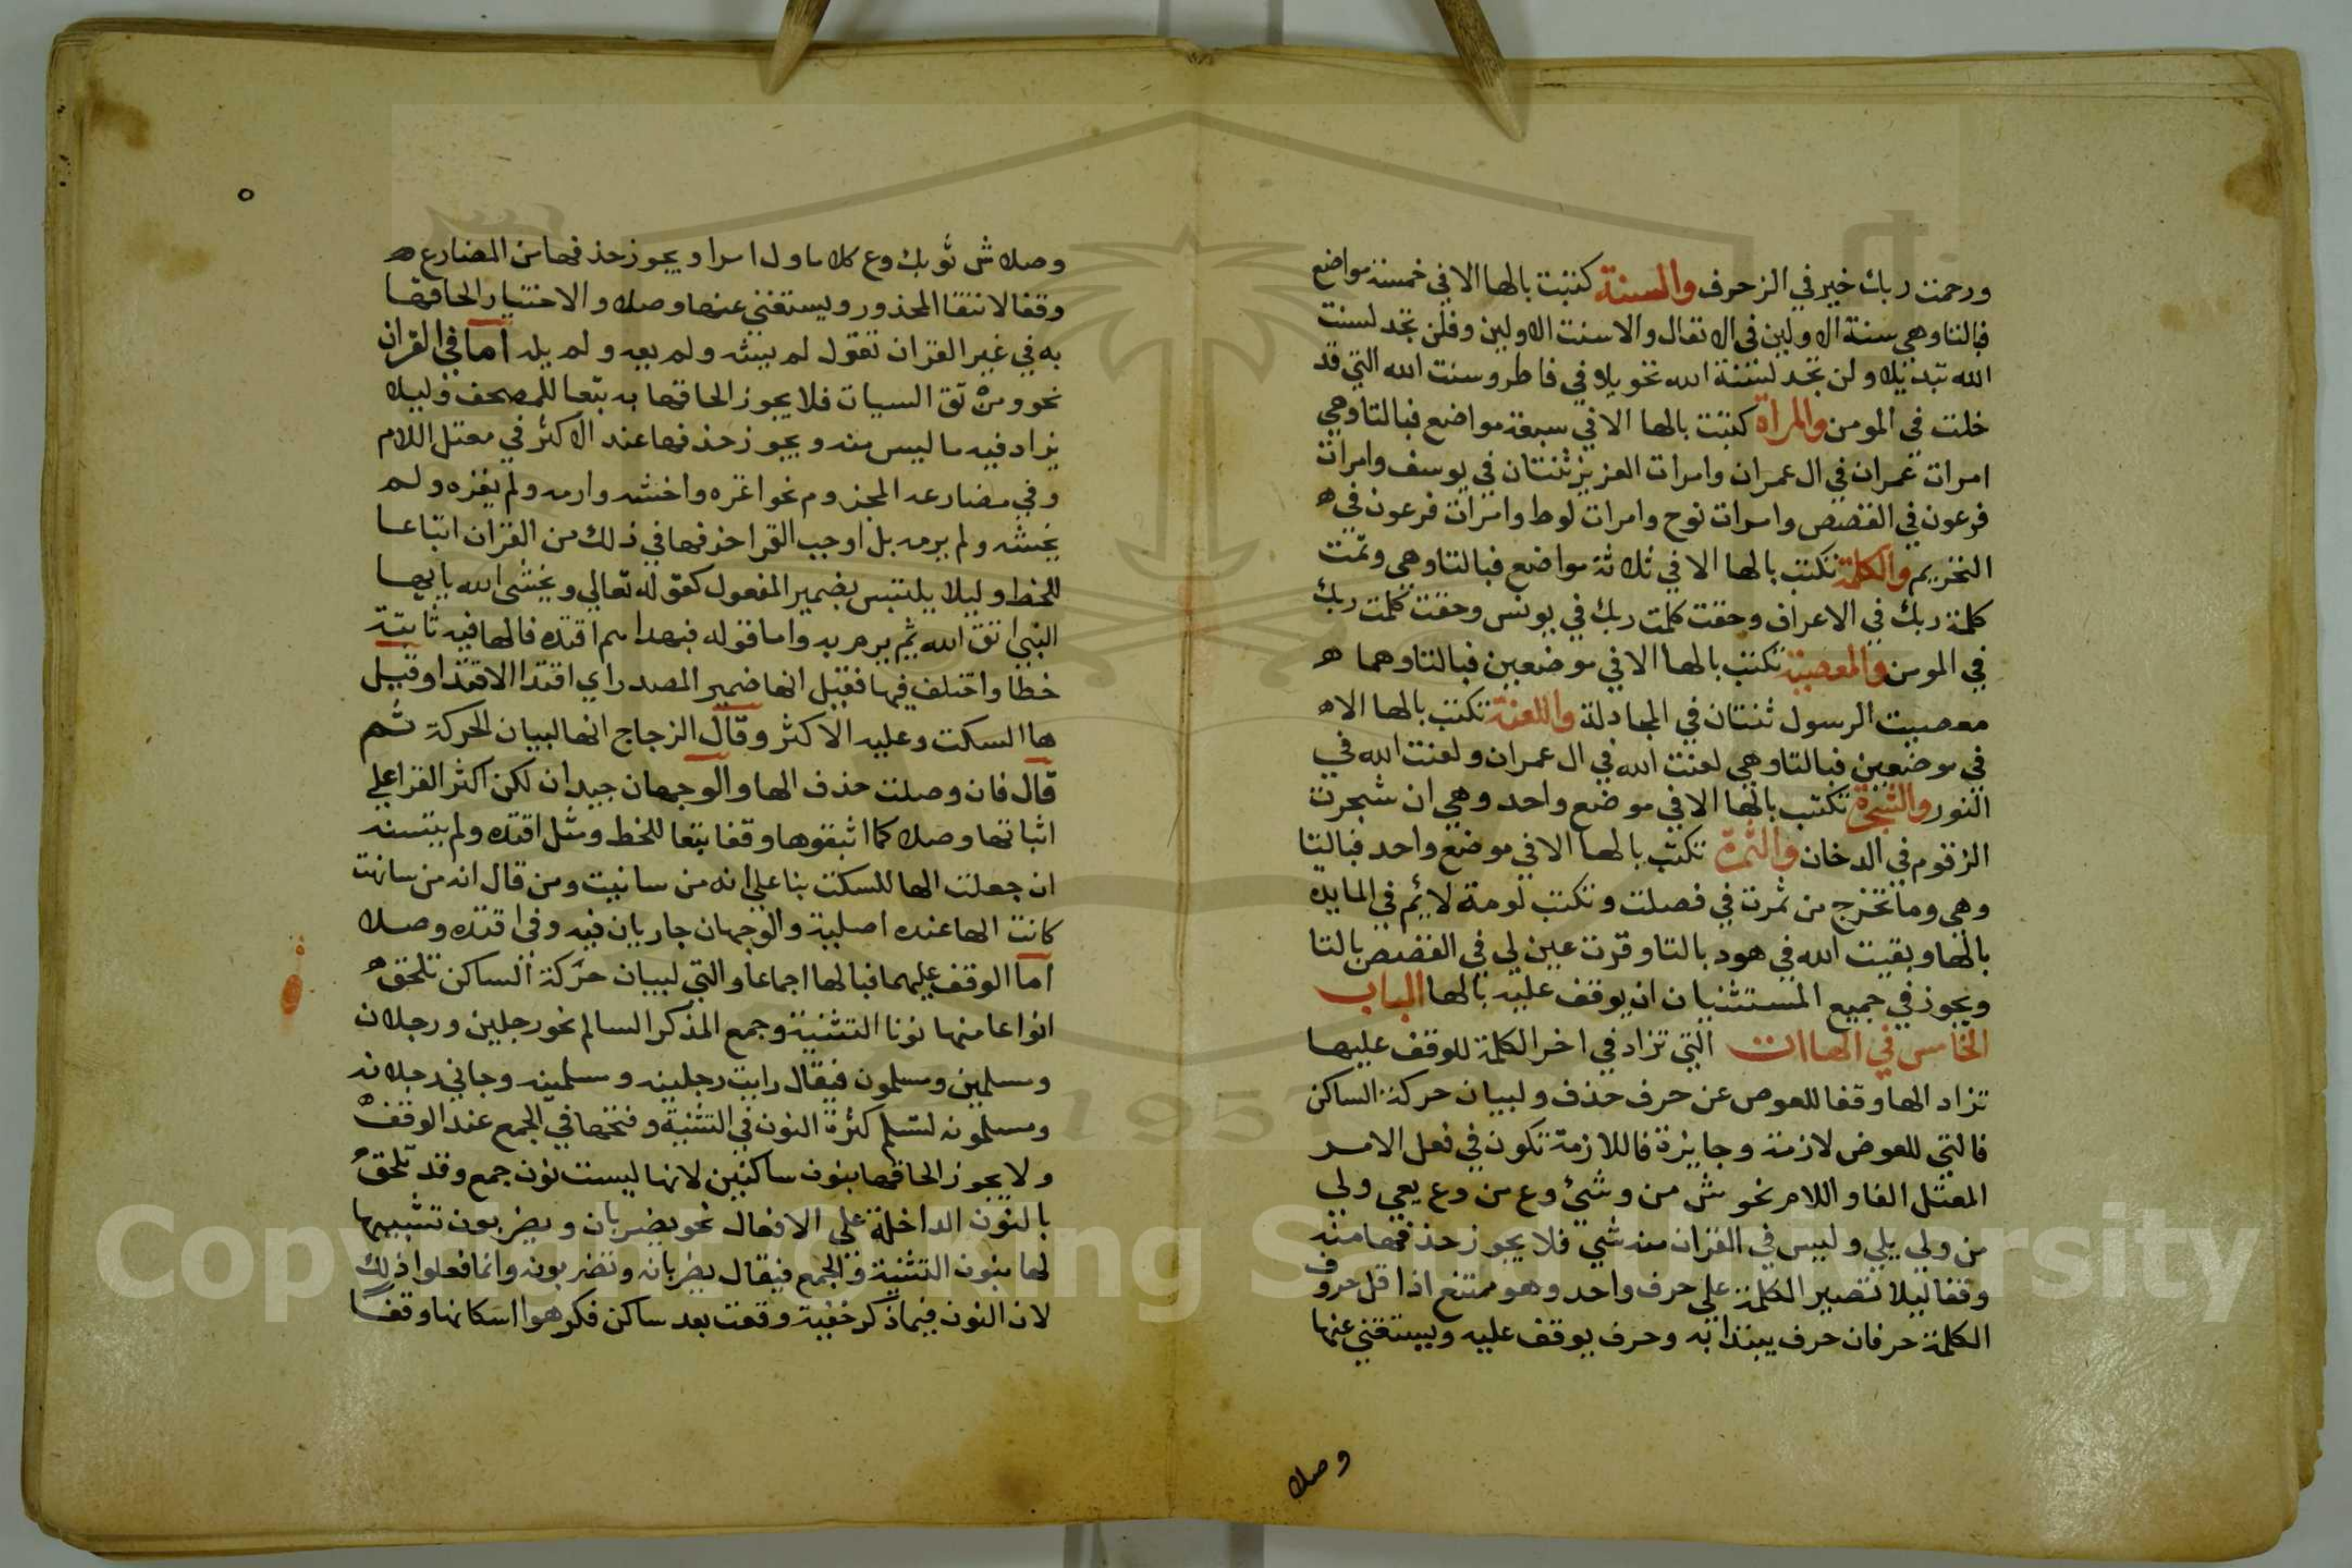 ورحمت ربك خير في الزخرف والسنة كتبت بالها الا في خمسة مواضع
فبالتا وهي سنة الاولين في الانفال والا سنت الاولين وفلن تجد لسنت
الله تبديلا ولن تجد لسنة الله تحويلا في فاطر وسنت الله التي قد
خلت في المومن والمراة كتبت بالها الا في سبعة مواضع فبالتا وهي
امرات عمران في ال عمران وامرات العزيز ثنتان في يوسف وامرات
فرعون في القصص وامرات نوح وامرات لوط وامرات فرعون في
التحريم والكلمة تكتب بالها الا في ثلاثة مواضع فبالتا وهي وتمت
كلمة ربك في الاعراف وحقت كلمت ربك في يونس وحقت كلمت ربك
في المومن والمعصية تكتب بالها الا في موضعين فبالتا وهما
معصيت الرسول ثنتان في المجادلة واللعنة تكتب بالها الا
في موضعين فبالتا وهي لعنت الله في ال عمران ولعنت الله في
النور والشجرة تكتب بالها الا في موضع واحد وهي ان شجرت
الزقوم في الدخان والثمرة تكتب بالها الا في موضع واحد فبالتا
وهي وما تخرج من ثمرت في فصلت وتكتب لومة لائم في المايده
بالها وبقيت الله في هود بالتا وقرت عين لي في القصص بالتا
ويجوز في جميع المستثنيان ان يوقف عليه بالها الباب
الخامس في الهاات التي تزاد في اخر الكلمة للوقف عليها
تزاد الها وقفا للعوض عن حرف حذف ولبيان حركة الساكن
فالتي للعوض لازمة وجايزة فاللازمة تكون في فعل الامر
المعتل الفا واللام نحو ش من وشئ وع من وع يعي ولي
من ولي يلي وليس في القران منه شي فلا يجوز حذفها منه
وقفا ليلا تصير الكلمة علي حرف واحد وهو ممتنع اذ اقل حروف
الكلمة حرفان حرف يبتدا به وحرف يوقف عليه ويستغني عنها
وصلا
وصلا ش ثوبك وع كلاما ول امرا ويجوز حذفها من المضارع
وقفا لانتفا المحذور ويستغني عنها وصلا والاختيار الحاقها
به في غير القران تقول لم يشه ولم يعه ولم يله اما في القران
نحو ومن تق السيات فلا يجوز الحاقها به تبعا للمصحف وليلا
يزاد فيه ما ليس منه ويجوز حذفها عند الاكثر في معتل اللام
وفي مضارعه المجزوم نحو اغزه واخشه وارمه ولم يغزه ولم
يخشه ولم يرمه بل اوجب القرا حذفها في ذلك من القران اتباعا
للخط وليلا يلتبس بضمير المفعول كقوله تعالي ويخشى الله يا ايها
النبي اتق الله ثم يرم به واما قوله فبهداهم اقتده فالها فيه ثابتة
خطا واختلف فيها فقيل انها ضمير المصدر اي اقتد الاقتدا وقيل
ها السكت وعليه الاكثر وقال الزجاج انها لبيان الحركة ثم
قال فان وصلت حذف الها والوجهان جيدان لكن اكثر القرا علي
اثباتها وصلا كما اثبتوها وقفا تبعا للخط ومثل اقتده ولم يتسنه
ان جعلت الها للسكت بنا علي انه من سانيت ومن قال انه من سانهت
كانت الها عنده اصلية والوجهان جاريان فيه وفي اقتده وصلا
اما الوقف عليهما فبالها اجماعا والتي لبيان حركة الساكن تلحق
انواعا منها نونا التثنية وجمع المذكر السالم نحو رجلين ورجلان
ومسلمين ومسلمون فيقال رايت رجلينه ومسلمينه وجاني رجلانه
ومسلمونه لتسلم كسرة النون في التثنية وفتحها في الجمع عند الوقف
ولا يجوز الحاقها بنون ساكنين لانها ليست نون جمع وقد تلحق
بالنون الداخلة على الافعال نحو يضربان ويضربون تشبيها
لها بنون التثنية والجمع فيقال يضربانه وتضربونه وانما فعلوا ذلك
لان النون فيما ذكر خفية وقعت بعد ساكن فكرهوا اسكانها وقفا
Copyright © King Saud University
1957